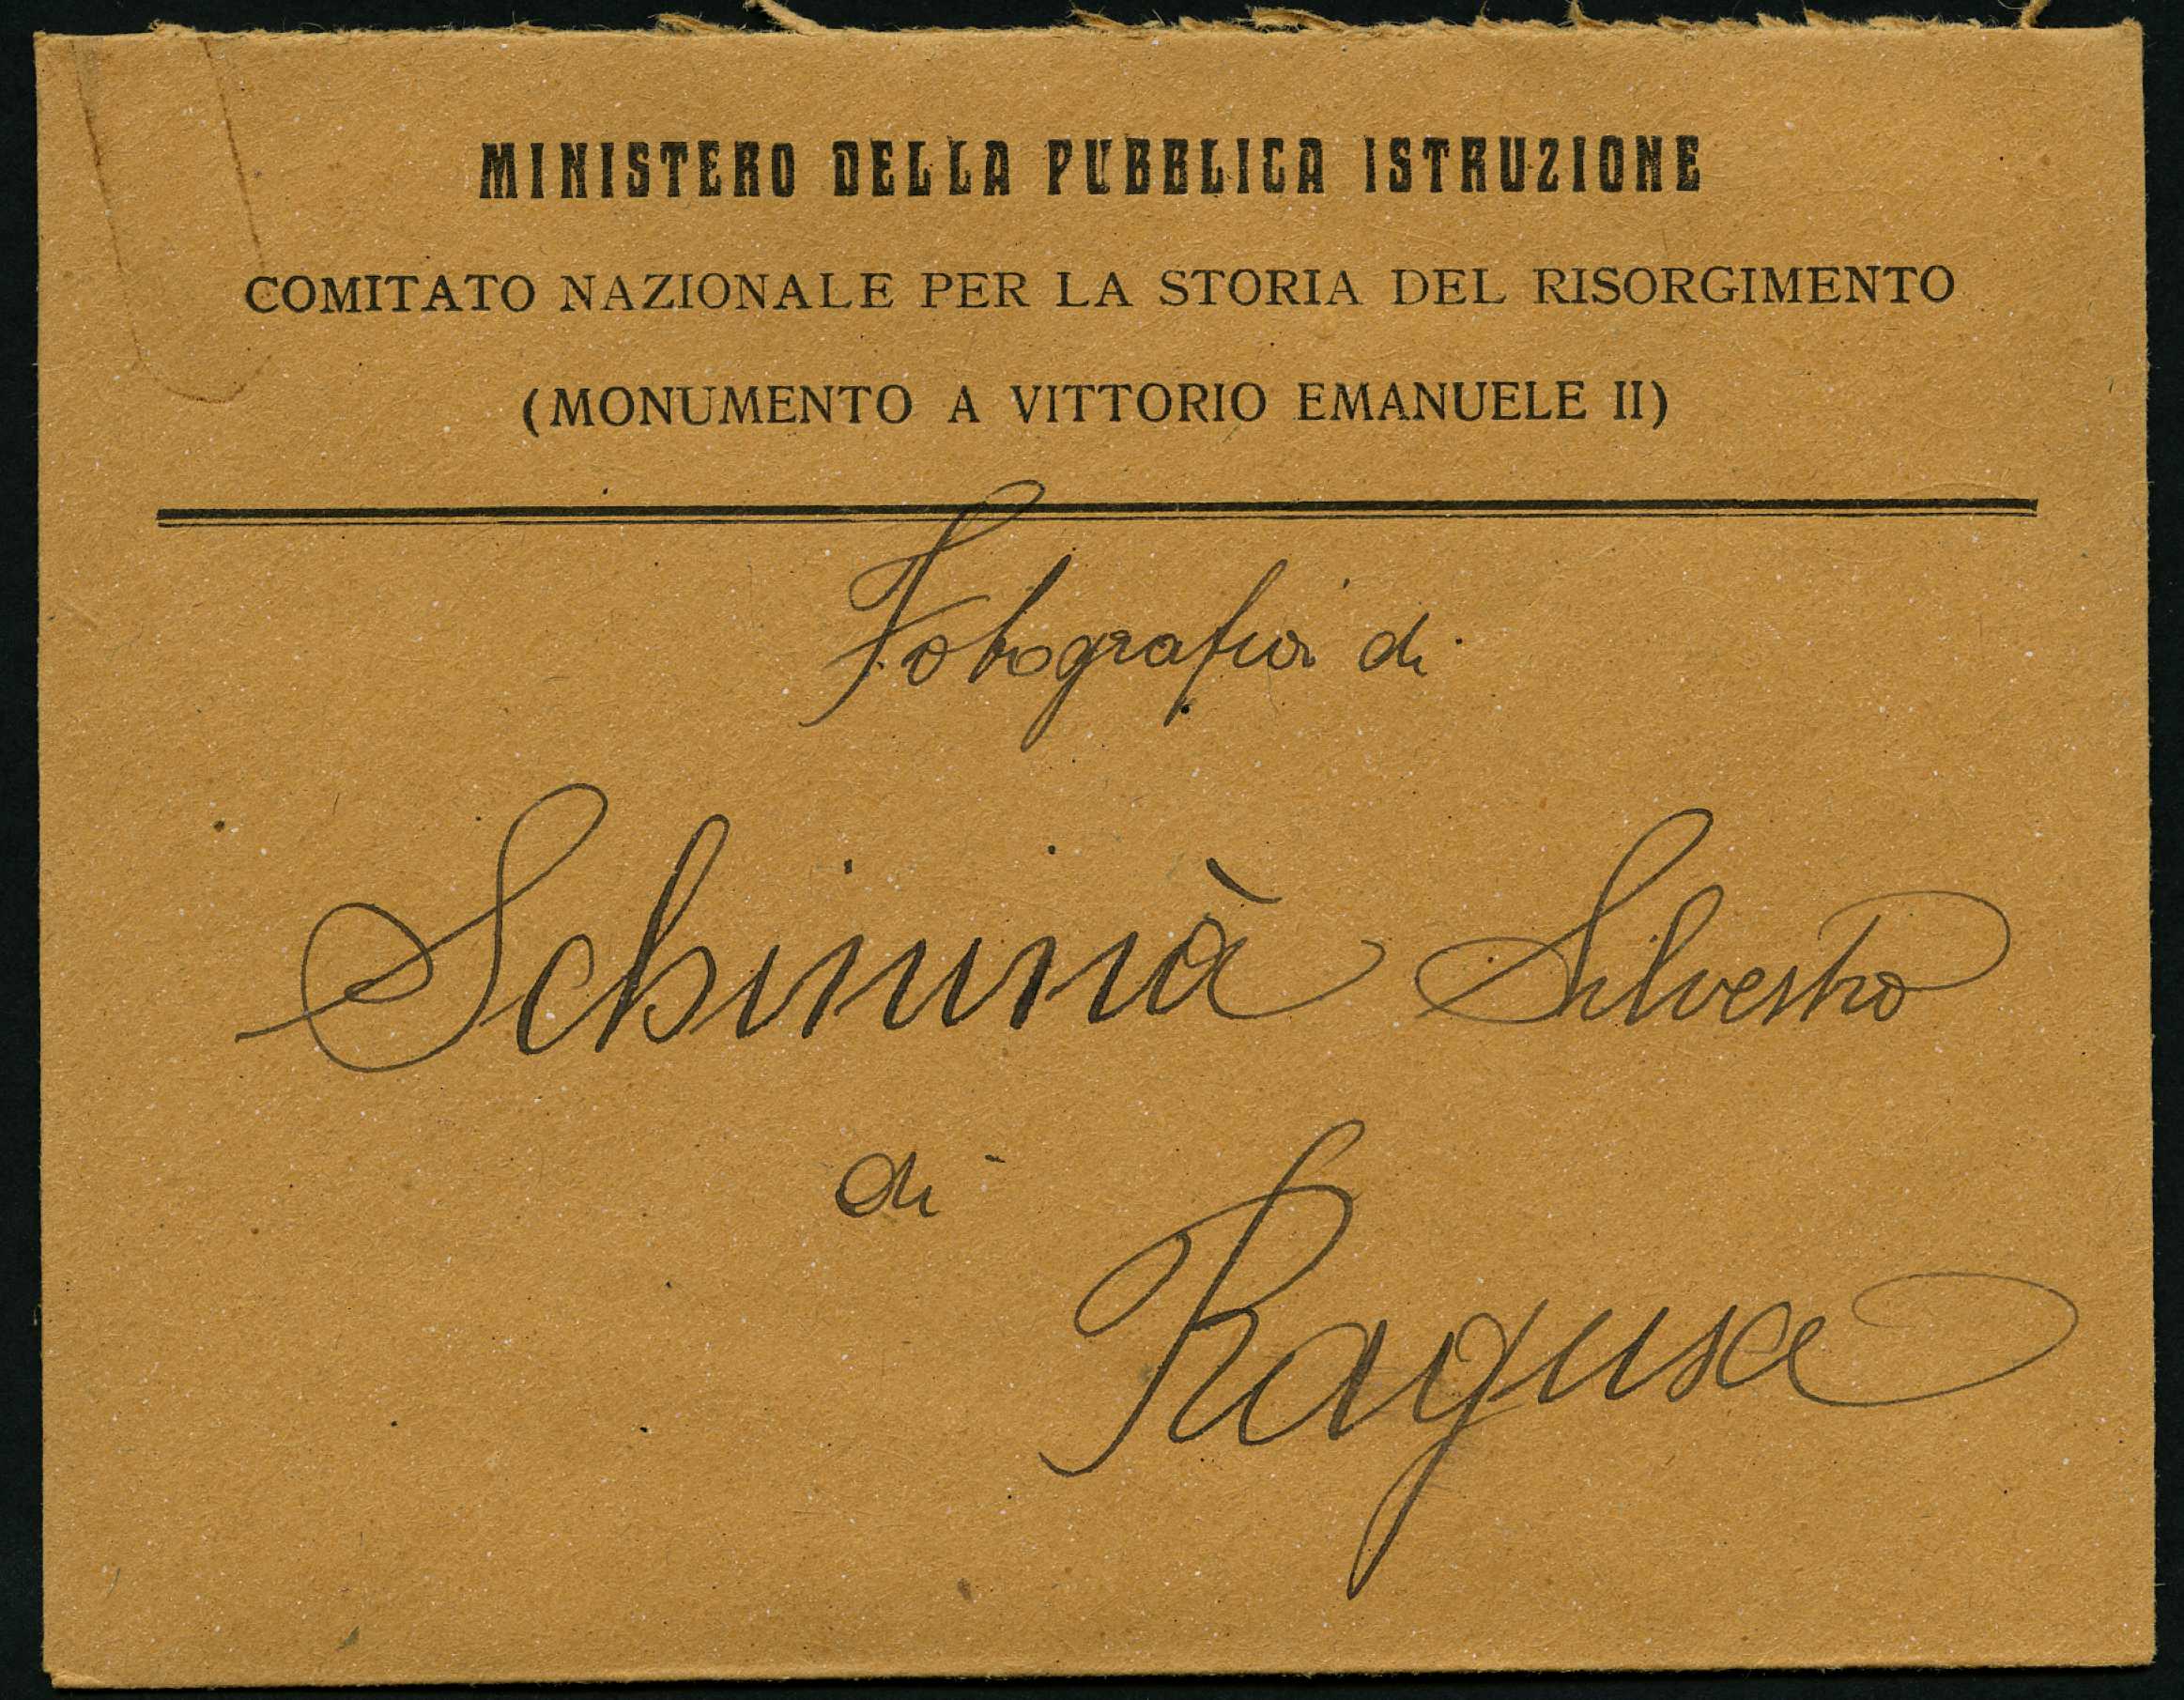 MINISTERO DELLA PUBBLICA ISTRUZIONE
COMITATO NAZIONALE PER LA STORIA DEL RISORGIMENTO
(MONUMENTO A VITTORIO EMANUELE II)
Fotografia di
Schininà Silvestro
di
Ragusa